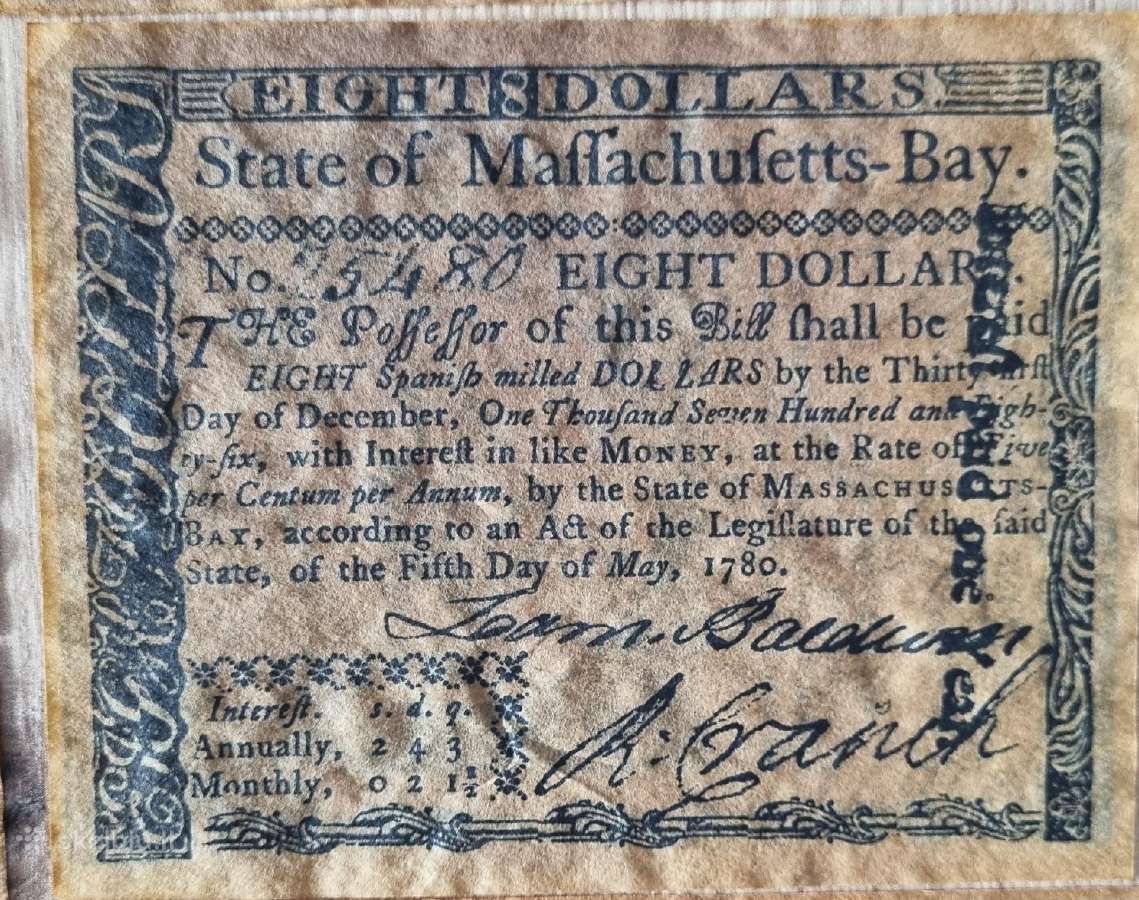 EIGHT 8 DOLLARS.
State of Maſſachuſetts-Bay.
No. 35480 EIGHT DOLLARS.
THE Poſſeſſor of this Bill ſhall be paid
EIGHT Spaniſh milled DOLLARS by the Thirty-firſt
Day of December, One Thouſand Seven Hundred and Eigh-
ty-ſix, with Intereſt in like MONEY, at the Rate of Five
per Centum per Annum, by the State of MASSACHUSETTS-
BAY, according to an Act of the Legiſlature of the ſaid
State, of the Fifth Day of May, 1780.
Baldwin
R: Cranch
Intereſt. s. d. q.
Annually, 2 4 3
Monthly, 0 2 1½